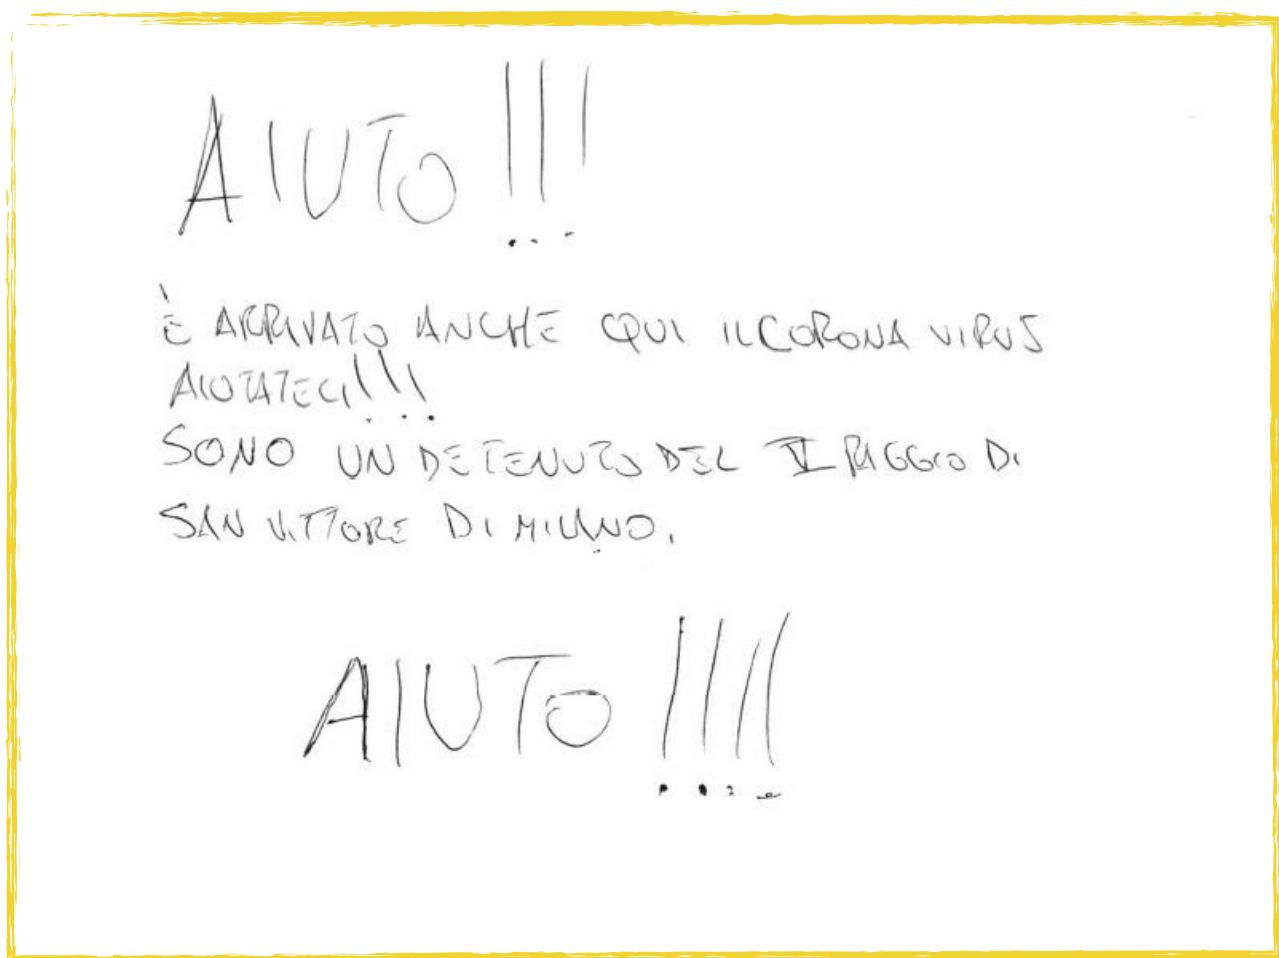 AIUTO!!!
È ARRIVATO ANCHE QUI IL CORONA VIRUS
AIUTATECI!!!
SONO UN DETENUTO DEL VI RAGGIO DI
SAN VITTORE DI MILANO.
AIUTO!!!!